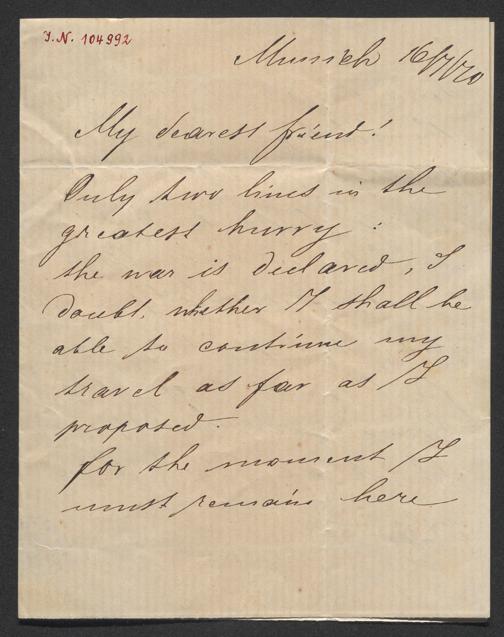 J.N. 104992
Munich 16/7/70
My dearest friend!
Only two lines in the
greatest hurry :
the war is declared, I
doubt, whether I shall be
able to continue my
travel as far as I
proposed.
for the moment I
must remain here